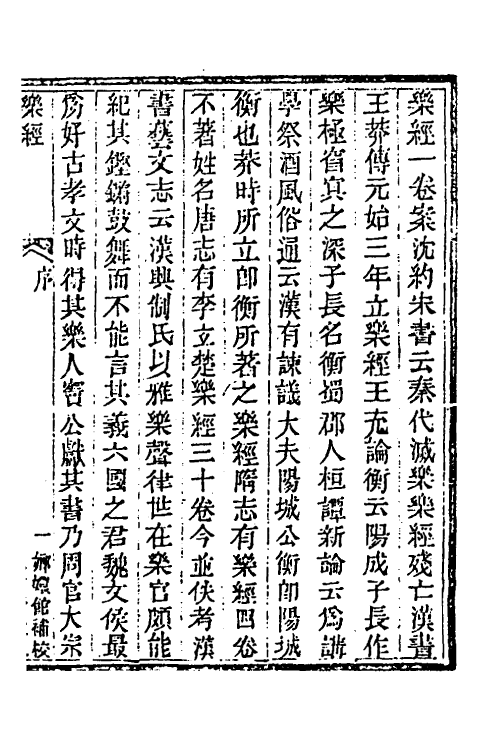 樂經一卷案沈約宋書云秦代滅樂樂經殘亡漢書
王莽傳元始三年立樂經王充論衡云陽成子長作
樂極窅冥之深子長名衡蜀郡人桓譚新論云爲講
學祭酒風俗通云漢有諫議大夫陽城公衡卽陽城
衡也莽時所立卽衡所著之樂經隋志有樂經四卷
不著姓名唐志有李立楚樂經三十卷今並佚考漢
書藝文志云漢興制氏以雅樂聲律世在樂官頗能
紀其鏗鏘鼓舞而不能言其義六國之君魏文侯最
爲好古孝文時得其樂人竇公獻其書乃周官大宗
樂經 序 一 嫏嬛館補校